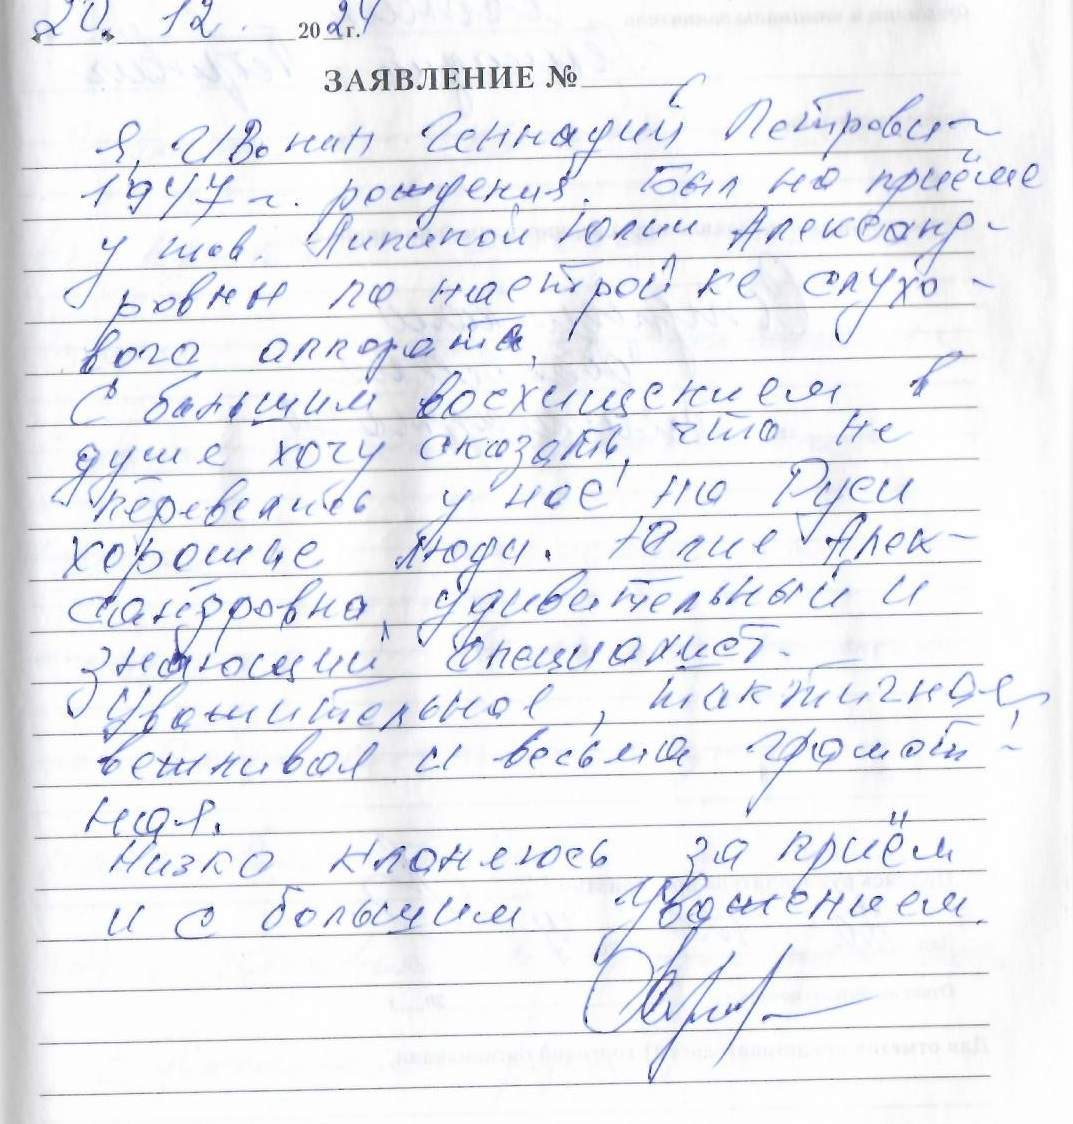 20. 12. 2024 г.
ЗАЯВЛЕНИЕ №
Я, Геннадий Петрович
1947 г. рождения. Был на приёме
у тов. Липиной Юлии Александ-
ровны по настройке слухо-
вого аппарата.
С большим восхищением в
душе хочу сказать, что не
перевелись у нас на Руси
хорошие люди. Юлия Алек-
сандровна, удивительный и
знающий специалист.
Уважительная, тактичная,
вежливая и весьма грамот-
ная.
Низко кланяюсь за приём
и с большим уважением.